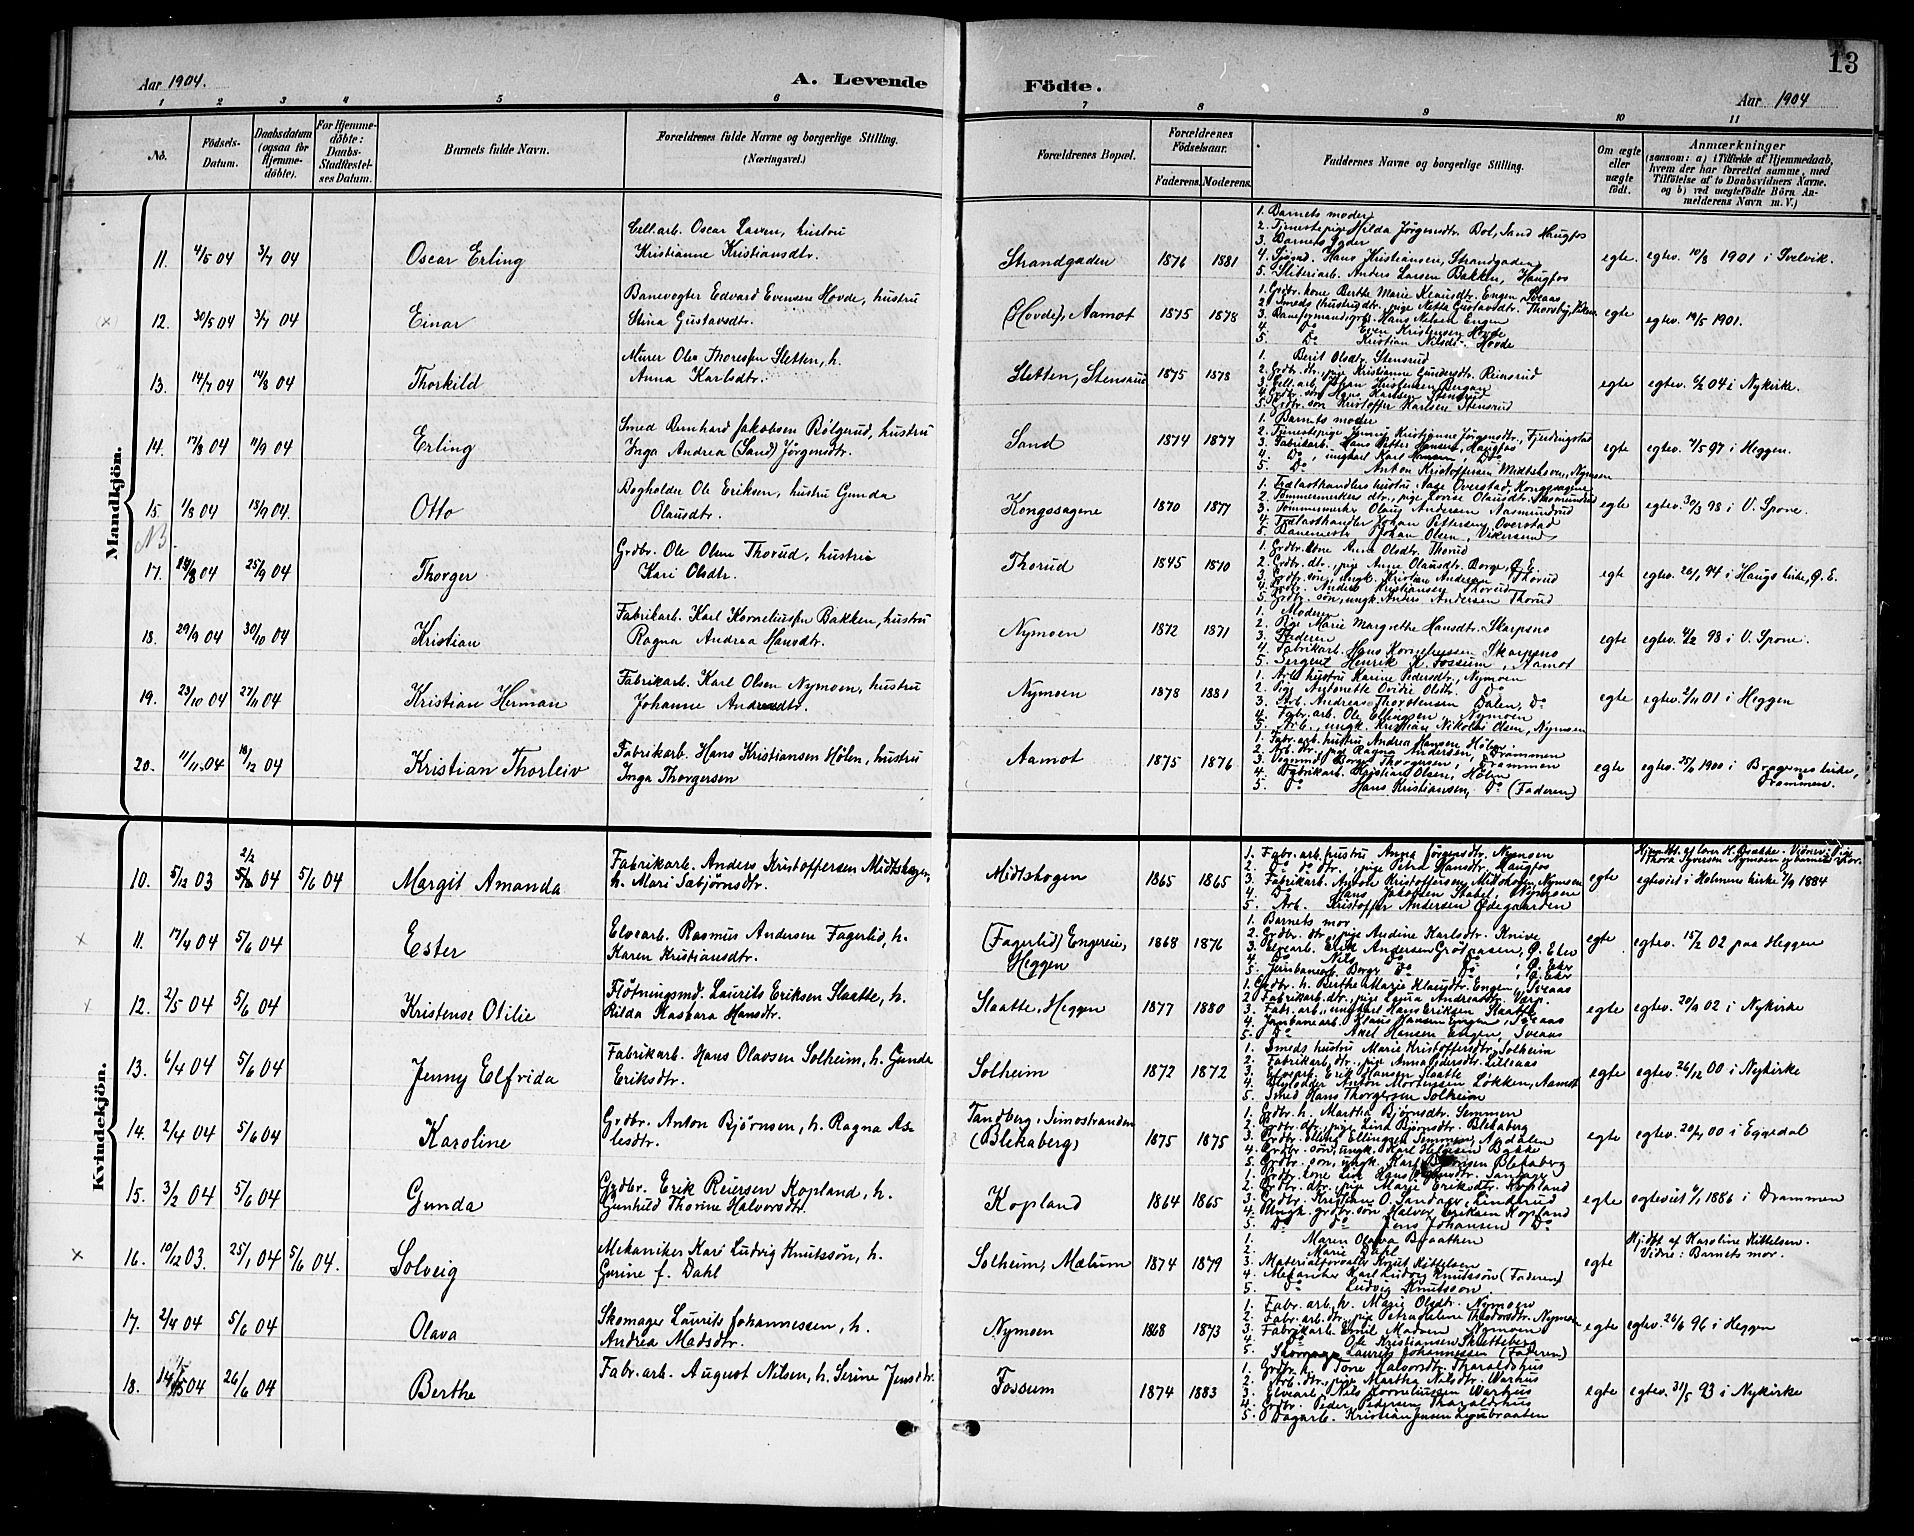 13
Aar 1904.
A. Levende
Födte.
Aar 1904
1 2 3 4 5 6 7 8 9 10 11
No.
Födsels-Datum.
Daabsdatum (ogsaa for Hjemme-döbte).
For Hjemme-döbte: Daabs-Stadfæstel-ses Datum.
Barnets fulde Navn.
Forældrenes fulde Navne og borgerlige Stilling. (Næringsvei.)
Forældrenes Bopæl.
Forældrenes Födselsaar.
Faderens. Moderens.
Faddernes Navne og borgerlige Stilling.
Om ægte eller uægte födt.
Anmærkninger
(saasom: a) i Tilfælde af Hjemmedaab, hvem der har forrettet samme, med Tilföielse af to Daabsvidners Navne, og b) ved uægtefödte Börn An-melderens Navn m. V.)
Mandkjön.
11. 4/5 04 3/7 04 Oscar Erling
Cell.arb. Oscar Larsen, hustru
Kristianne Kristiansdtr.
Strandgaden 1876 1881
1. Barnets moder
2. Tjenestepige Hilda Jörgensdtr. Bol, Sand Haugfos
3. Barnets fader
4. Sjömd. Hans Kristiansen, Strandgaden
5. Sliteriarb. Anders Larsen Bakken, Haugfos
egte egtev. 10/8 1901 i Svelvik.
(x) 12. 30/5 04 3/7 04 Einar
Banevogter Edvard Evensen Hovde, hustru
Stina Gustavsdtr.
(Hovde), Aamot 1875 1878
1. Grdbr. kone Berthe Marie Klausdtr. Engen Sveaas
2. Smeds (hustru)dtr. pige Mette Gustavsdtr. Thorsby,
3. Baneformand, grb. Hans Nilsen Engen
4. Do Even Kristensen Hovde
5. Do Kristian Nilsdtr. Hovde
egte egtev. 19/5 1901.
13. 14/7 04 14/8 04 Thorkild
Murer Ole Thoresen Sletten, h.
Anna Karlsdtr.
Sletten, Stensrud 1875 1878
1. Berit Olsdtr. Stensrud
2. Grdbr. dtr., pige Kristianne Gundersdtr. Reinsrud
3. Cell. arb. Johan Kristensen Bergan
4. Grdbr. søn Hans Karlsen Stensrud
5. Grdbr. søn Kristoffer Karlsen Stensrud
egte egtev. 6/2 04 i Nykirke.
14. 17/8 04 11/9 04 Erling
Smed Bernhard Jakobsen Bölgerud, hustru
Inga Andrea (Sand) Jörgensdtr.
Sand 1874 1877
1. Barnets moder
2. Tjenestepige Jenny Kristianne Jörgensdtr., Fjerdingstad
3. Fabrikarb. Hans Petter Hansen, Haugfos
4. Do, ungkarl Karl Hansen, Do
5. Do Anton Kristoffersen Midtskoven, Nymoen
egte egtev. 7/5 97 i Heggen.
15. 1/8 04 18/9 04. Otto
Bogholder Ole Eriksen, hustru Gunda
Olausdtr.
Kongssagene 1870 1877
1. Trælasthandlers hustru, Aase Overstad, Kongssagene
2. Tømmermerkers dtr., pige Lovise Olausdtr. Aasmundrud
3. Tømmermerker Olaus Andersen Aasmundrud
4. Trælasthandler Johan Pettersen, Overstad
5. Banemester Johan Olsen, Vikersund
egte egtev. 30/3 98 i V. Spone.
NB.
17. 04 25/9 04 Thorger
Grdbr. Ole Olsen Thorud, hustru
Kari Olsdtr.
Thorud 1845 1870
1. Grdbr. kone Anne Olsdtr. Thorud
2. Grdbr. dt., pige Anne Olausdtr. Borge, Ø. E.
3. Grdbr. søn, ungk. Kristian Andersen Thorud
4. Grdbr. Anders Kristiansen Thorud
5. Grdbr. søn, ungk. Anders Andersen Thorud
egte egtev. 26/1 94 i Haugs kirke, Ø. E.
18. 29/9 04 30/10 04 Kristian
Fabrikarb. Karl Korneliussen Bakken, hustru
Ragna Andrea Hansdtr.
Nymoen 1872 1871
1. Moderen
2. Pige Marie Margrethe Hansdtr. Skarpsno
3. Faderen
4. Fabrikarb. Hans Korneliussen Skarpsno
5. Sergent Henrik K. Fossum, Aamot
egte egtev. 4/2 98 i V. Spone.
19. 23/10 04 27/11 04 Kristian Herman
Fabrikarb. Karl Olsen Nymoen, hustru
Johanne Andreasdtr.
Nymoen 1878 1881
1. Arb. hustru Karine Pedersdtr., Nymoen
2. Pige Antonette Ovidie Olsdtr. Do
3. Arb. Andreas Thorstensen Dalen, Do
4. Fabr. arb. Ole Ellingsen, Nymoen
5. Arb., ungk. Kristian Nikolai Olsen, Nymoen
egte egtev. 2/11 01 i Heggen
20. 11/11 04 18/12 04 Kristian Thorleiv
Fabrikarb. Hans Kristiansen Hölen, hustru
Inga Thorgersen
Aamot 1875 1876
1. Fabr. arb. hustru Andrea Hansen Hölen
2. Arb. dtr., pige Ragna Andersen, Drammen
3. Veiermd Borger Thorgersen, Drammen
4. Fabrikarb. Kristian Olsen, Hölen
5. Do Hans Kristiansen, Do (Faderen)
egte egtev. 25/6 1900 i Bragernes kirke, Drammen.
Kvindekjön.
10. 5/12 03 2/2 04 5/6 04 Margit Amanda
Fabrikarb. Anders Kristoffersen Midtskogen,
h. Mari Asbjørnsdtr.
Midtskogen 1865 1865
1. Fabr. arb. hustru Anna Jörgensdtr. Nymoen
2. Do dtr., pige Petra Hansdtr. Haugfos
3. Fabrikarb. Anton Kristoffersen, Midtskogen, Nymoen
4. Do Hans Jakobsen Stabel, Nymoen
5. Arb. Kristoffer Andersen Ødegaarden
egte Hjemdt. af Lars H. Bakke. Vidner: Pige Thora Syversen Nymoen og barnets
egteviet i Holmens kirke 7/9 1884
x 11. 17/4 04 5/6 04 Ester
Elvearb. Rasmus Andersen Fagerlid, h.
Karen Kristiansdtr.
(Fagerlid) Engereie, Heggen 1868 1876
1. Barnets mor
2. Grdbr. dtr., pige Andine Karlsdtr. Knive
3. Elvearb. Erik Andersen Gröpaasen, Ø. Eker
4. Do Nils Do Do, Ø. Eker
5. Jernbanearb. Borge Do Do, Ø. Eker
egte egtev. 15/2 02 paa Heggen
x 12. 2/5 04 5/6 04 Kristense Otilie
Fløtningsmd. Laurits Eriksen Slaatte, h.
Rilda Kasbara Hansdtr.
Slaatte, Heggen 1877 1880
1. Grdbr. h. Berthe Marie Klausdtr. Engen, Sveaas
2. Fabrikarb. dtr., pige Laura Andreasdtr. Værp.
3. Fabr. arb., ungkarl Hans Eriksen Slaatte
4. Jernbanearb. Klaus Hansen Engen, Sveaas
5. Do Axel Hansen Engen, Sveaas
egte egtev. 20/9 02 i Nykirke
13. 6/4 04 5/6 04 Jenny Elfrida
Fabrikarb. Hans Olavsen Solheim, h. Gunda
Eriksdtr.
Solheim 1872 1872
1. Smeds hustru Marie Kristoffersdtr. Solheim
2. Fabrikarb. dtr., pige Anna Pedersdtr. Lilleaas
3. Elvearb. Erik Hansen Slaatte
4. Flyløder Anton Mortensen Løkken, Aamot
5. Smed Hans Thorgersen Solheim
egte egtev. 26/12 00 i Nykirke
14. 2/4 04 5/6 04 Karoline
Grdbr. Anton Bjørnsen, h. Ragna As-
lesdtr.
Tandberg, Simostranden (Blekaberg) 1875 1875
1. Grdbr. h. Martha Bjørnsdtr. Semmen
2. Grdbr. dtr., pige Lina Bjørnsdtr. Blekaberg
3. Grdbr. Elling Ellingsen Semmen, Aadalen
4. Grdbr. søn, ungk. Karl Helgesen Bakke
5. Grdbr. søn, ungk. Karl Bjørnsen Blekaberg
egte egtev. 20/7 00 i Eggedal
15. 3/2 04 5/6 04 Gunda
Grdbr. Erik Reiersen Kopland, h.
Gunhild Thorine Halvorsdtr.
Kopland 1864 1865
1. Grdbr. kone Lise Hansdtr. Sandager
2. Grdbr. dtr., pige Marie Eriksdtr. Kopland
3. Grdbr. Kristian O. Sandager, Linderud
4. Ungk. grdbr. søn Halvor Eriksen Kopland
5. Do Do Jens Johansen Do
egte egteviet 6/1 1886 i Drammen
x 16. 10/12 03. 25/1 04 5/6 04. Solveig
Mekaniker Karl Ludvig Knutssön, h.
Gurine f. Dahl
Solheim, Mælum 1874 1879
1. Maren Olava Braathen
2. Marie Dahl
3. Materialforvalter Knut Kittelsen
4. Mekaniker Karl Ludvig Knutssön (Faderen)
5. Do Ludvig Knutsson
egte Hjdbt af Karoline Kittelsen.
Vidne: Barnets mor.
17. 2/4 04 5/6 04 Olava
Skomager Laurits Johannessen, h.
Andrea Madsdtr.
Nymoen 1868 1873
1. Fabr. arb. h. Marie Olsdtr. Nymoen
2. Fabr. arb. dtr., pige Petra Thodorsdtr. Nymoen
3. Fabrikarb. Emil Madsen Nymoen
4. Do Ole Kristiansen Skutteberg
5. Skomager Laurits Johannessen (Faderen)
egte egtev. 26/6 96 i Heggen
18. 04 26/6 04 Berthe
Fabr. arb. August Nilsen, h. Serine Jensdtr.
Fossum 1874 1883
1. Grdbr. h. Tone Halvorsdtr. Tharaldshus
2. Arb. dtr., pige Martha Nilsdtr. Warhus
3. Elvearb. Nils Korneliussen Warhus
4. Grdbr. Peder Pedersen Tharaldshus
5. Dagarb. Kristian Jensen
egte egtev. 31/5 93 i Nykirke